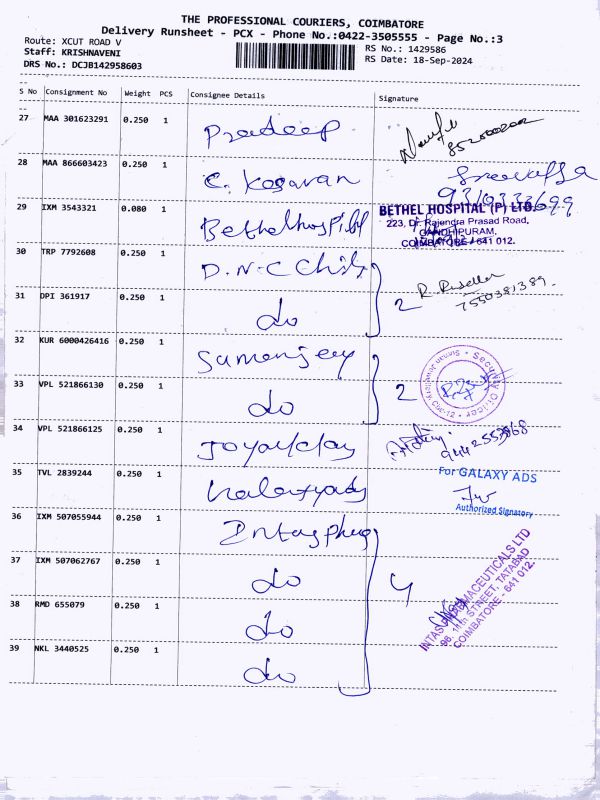 THE PROFESSIONAL COURIERS, COIMBATORE
Delivery Runsheet - PCX - Phone No.:0422-3505555 - Page No.:3
Route: XCUT ROAD V
RS No.: 1429586
Staff: KRISHNAVENI
RS Date: 18-Sep-2024
DRS No.: DCJB142958603
S No Consignment No Weight PCS Consignee Details Signature
27 MAA 301623291 0.250 1 Pradeep
28 MAA 866603423 0.250 1
29 IXM 3543321 0.080 1 Bethelhospital
BETHEL HOSPITAL (P) LTD.
223, Dr. Rajendra Prasad Road,
GANDHIPURAM,
COIMBATORE - 641 012.
30 TRP 7792608 0.250 1 D.N.C Chits
31 DPI 361917 0.250 1 do 2
7550381389
32 KUR 6000426416 0.250 1
33 VPL 521866130 0.250 1 do 2
Security Officer
34 VPL 521866125 0.250 1
35 TVL 2839244 0.250 1
For GALAXY ADS
Authorized Signatory
36 IXM 507055944 0.250 1
37 IXM 507062767 0.250 1 do 4
38 RMD 655079 0.250 1 do
39 NKL 3440525 0.250 1 do
INTAS PHARMACEUTICALS LTD
98, 11th STREET, TATABAD
COIMBATORE - 641 012.